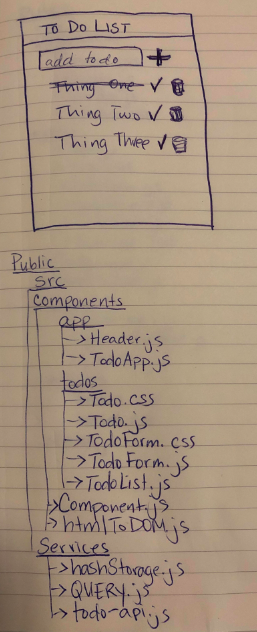 TO DO LIST
add todo +
Thing One ✓
Thing Two ✓
Thing Three ✓
Public
Src
Components
app
->Header.js
->TodoApp.js
todos
->Todo.css
->Todo.js
->TodoForm.css
->TodoForm.js
->TodoList.js
->Component.js
->htmlToDOM.js
Services
->hashStorage.js
->QUERY.js
->todo-api.js